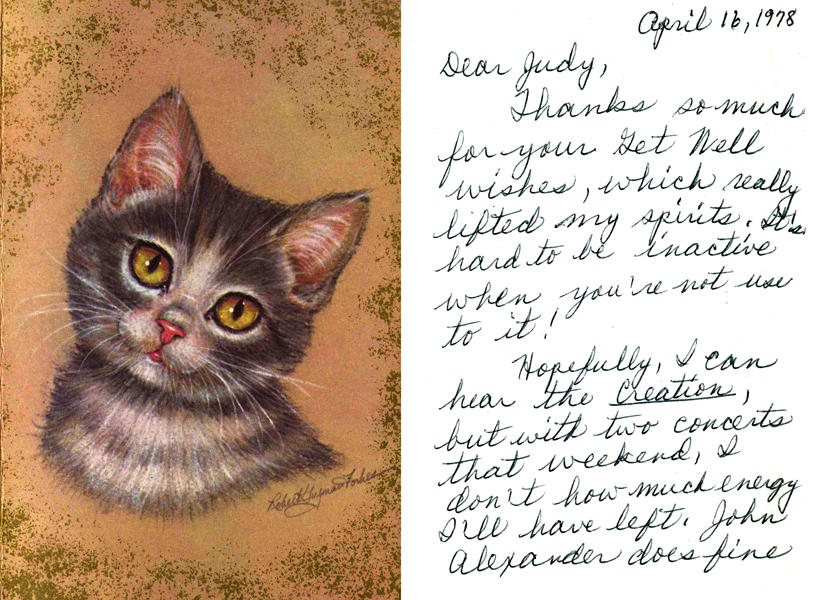 April 16, 1978
Dear Judy,
Thanks so much
for your Get Well
wishes, which really
lifted my spirits. It's
hard to be inactive
when you're not use
to it!
Hopefully, I can
hear the Creation,
but with two concerts
that weekend, I
don't how much energy
I'll have left. John
Alexander does fine